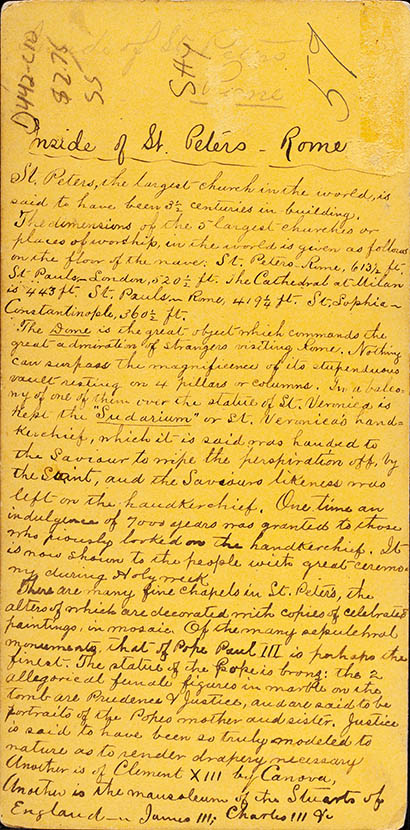 Inside of St. Peters
Rome
D442-C10
$2.75
SS
SHY
59
Inside of St. Peters - Rome
St. Peters, the largest church in the world, is
said to have been 3½ centuries in building.
The dimensions of the 5 largest churches or
places of worship, in the world is given as follows
on the floor of the nave: St. Peters-Rome, 613½ ft.
St Pauls-London, 520½ ft. The Cathedral at Milan
is 443 ft. St. Pauls-Rome, 419¼ ft. St. Sophia-
Constantinople, 360½ ft.
The Dome is the great object which commands the
great admiration of strangers visiting Rome. Nothing
can surpass the magnificence of its stupendous
vault resting on 4 pillars or columns. In a balco-
ny of one of them over the statue of St. Veronica is
Kept the "Sudarium" or St. Veronica's hand-
Kerchief, which it is said was handed to
the Saviour to wipe the perspiration off, by
the Saint, and the Saviours likeness was
left on the handkerchief. One time an
indulgence of 7000 years was granted to those
who piously looked on the handkerchief. It
is now shown to the people with great ceremo-
ny during Holy week
There are many fine Chapels in St. Peters, the
alters of which are decorated with copies of celebrated
paintings, in mosaic. Of the many sepulchral
monuments, that of Pope Paul III is perhaps the
finest. The statue of the Pope is bronz: the 2
allegorical female figures in marble on the
tomb are Prudence & Justice, and are said to be
portraits of the Popes mother and sister. Justice
is said to have been so truly modeled to
nature as to render drapery necessary
Another is of Clement XIII by Canova,
Another is the mausoleum of the Stuarts of
England - James III; Charles III &